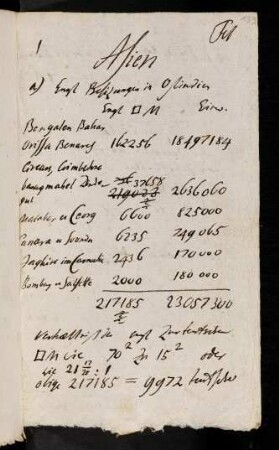 1
Asien
a) Engl Besitzungen in Ostindien
Engl □ M Einw.
Bengalen Bahar
Orissa Benares 162256 18497184
37658
2636060
gul
Malabar u Coorg 6600 825000
Canara u Soonda 6235 749065
Jaghire im Carnatic 2436 170000
Bombay u Salsette 2000 180000
217185 23057300
Verhältniß der engl zur teutschen
□ M wie 70² zu 15² oder
wie 21 : 1
obige 217185 = 9972 teutsche